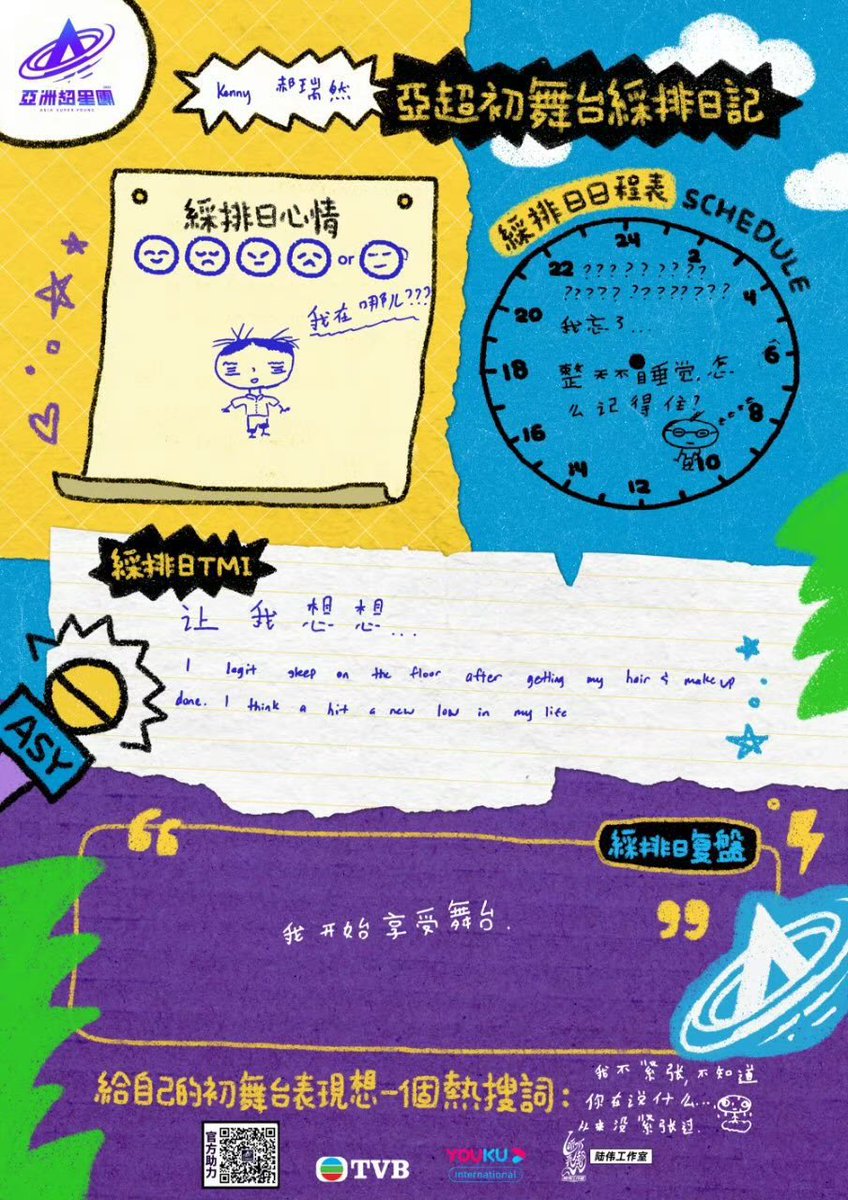 亞洲超星團
ASIA SUPER YOUNG
Kenny 郝瑞然
亞超初舞台綵排日記
綵排日心情
or
我在哪儿???
綵排日日程表 SCHEDULE
24
2
4
6
8
10
12
14
16
18
20
22
????????
?????????????
我忘了...
整天不睡觉,怎
么记得住?
綵排日TMI
让我想想...
I legit sleep on the floor after getting my hair & make up
done. I think a hit a new low in my life
ASY
綵排日复盤
我开始享受舞台.
給自己的初舞台表現想一個熱搜詞:
我不紧张,不知道
你在说什么...
从来没紧张过.
官方助力
TVB
YOUKU
international
陆伟工作室